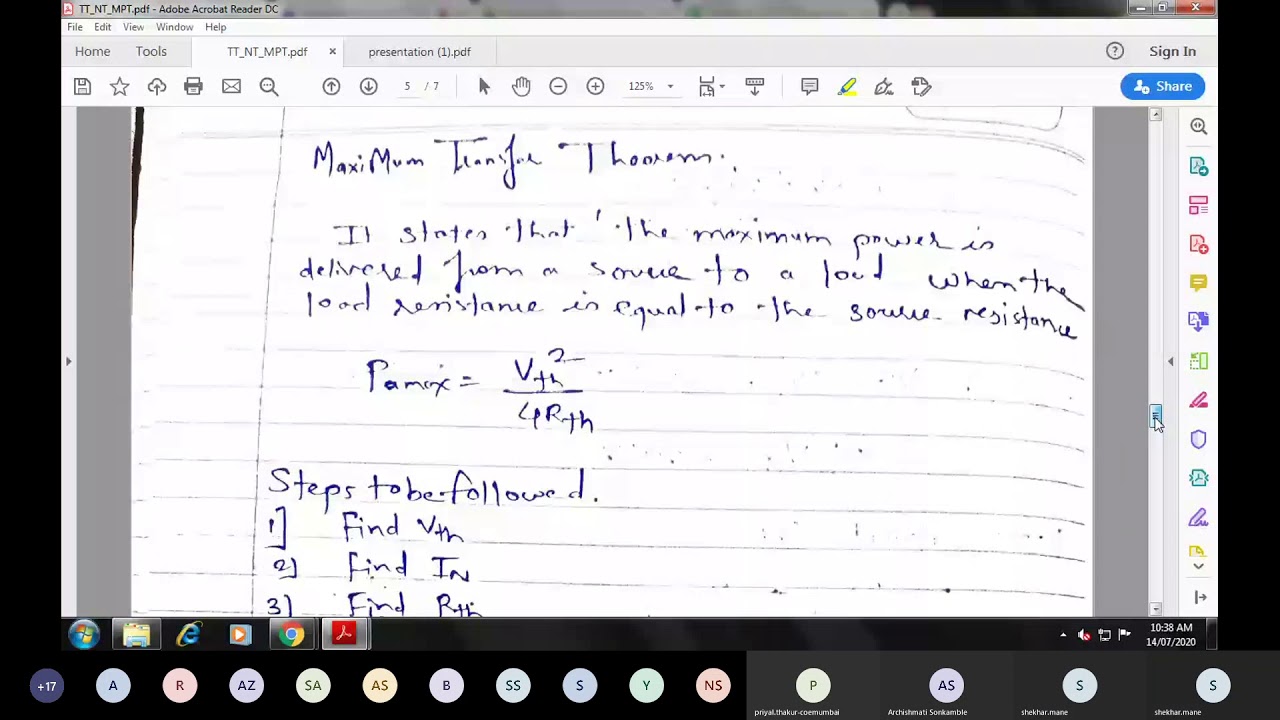 TT_NT_MPT.pdf - Adobe Acrobat Reader DC
File Edit View Window Help
Home Tools TT_NT_MPT.pdf × presentation (1).pdf ? Sign In
5 / 7 125% Share
Maximum Transfer Theorem.
It states that 'the maximum power is
delivered from a source to a load when the
load resistance is equal to the source resistance
Pamax = Vth²/4Rth
Steps to be followed.
1] Find Vth
2] Find IN
3] Find Rth
10:38 AM
14/07/2020
+17 A R AZ SA AS B SS S Y NS P AS S S
priyal.thakur-coemumbai Archishmati Sonkamble shekhar.mane shekhar.mane